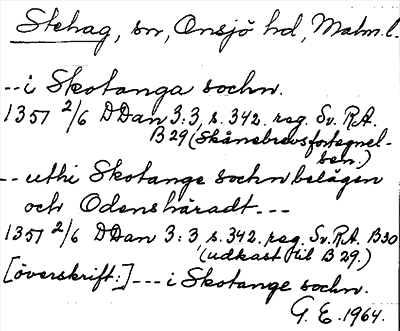 Stehag, sn, Onsjö hd, Malm. l.
-- i Skotanga sochn.
1351 2/6 DDan 3:3, s. 342. reg. Sv. R.A.
B 29 (Skånebrevsfortegnel-
sen.)
-- uthi Skotange sochn belägen
och Odenshäradt ---
1351 2/6 DDan 3:3, s. 342. reg. Sv. R.A. B 30
(udkast til B 29.)
[överskrift:] --- i Skotange sochn.
G. E. 1964.